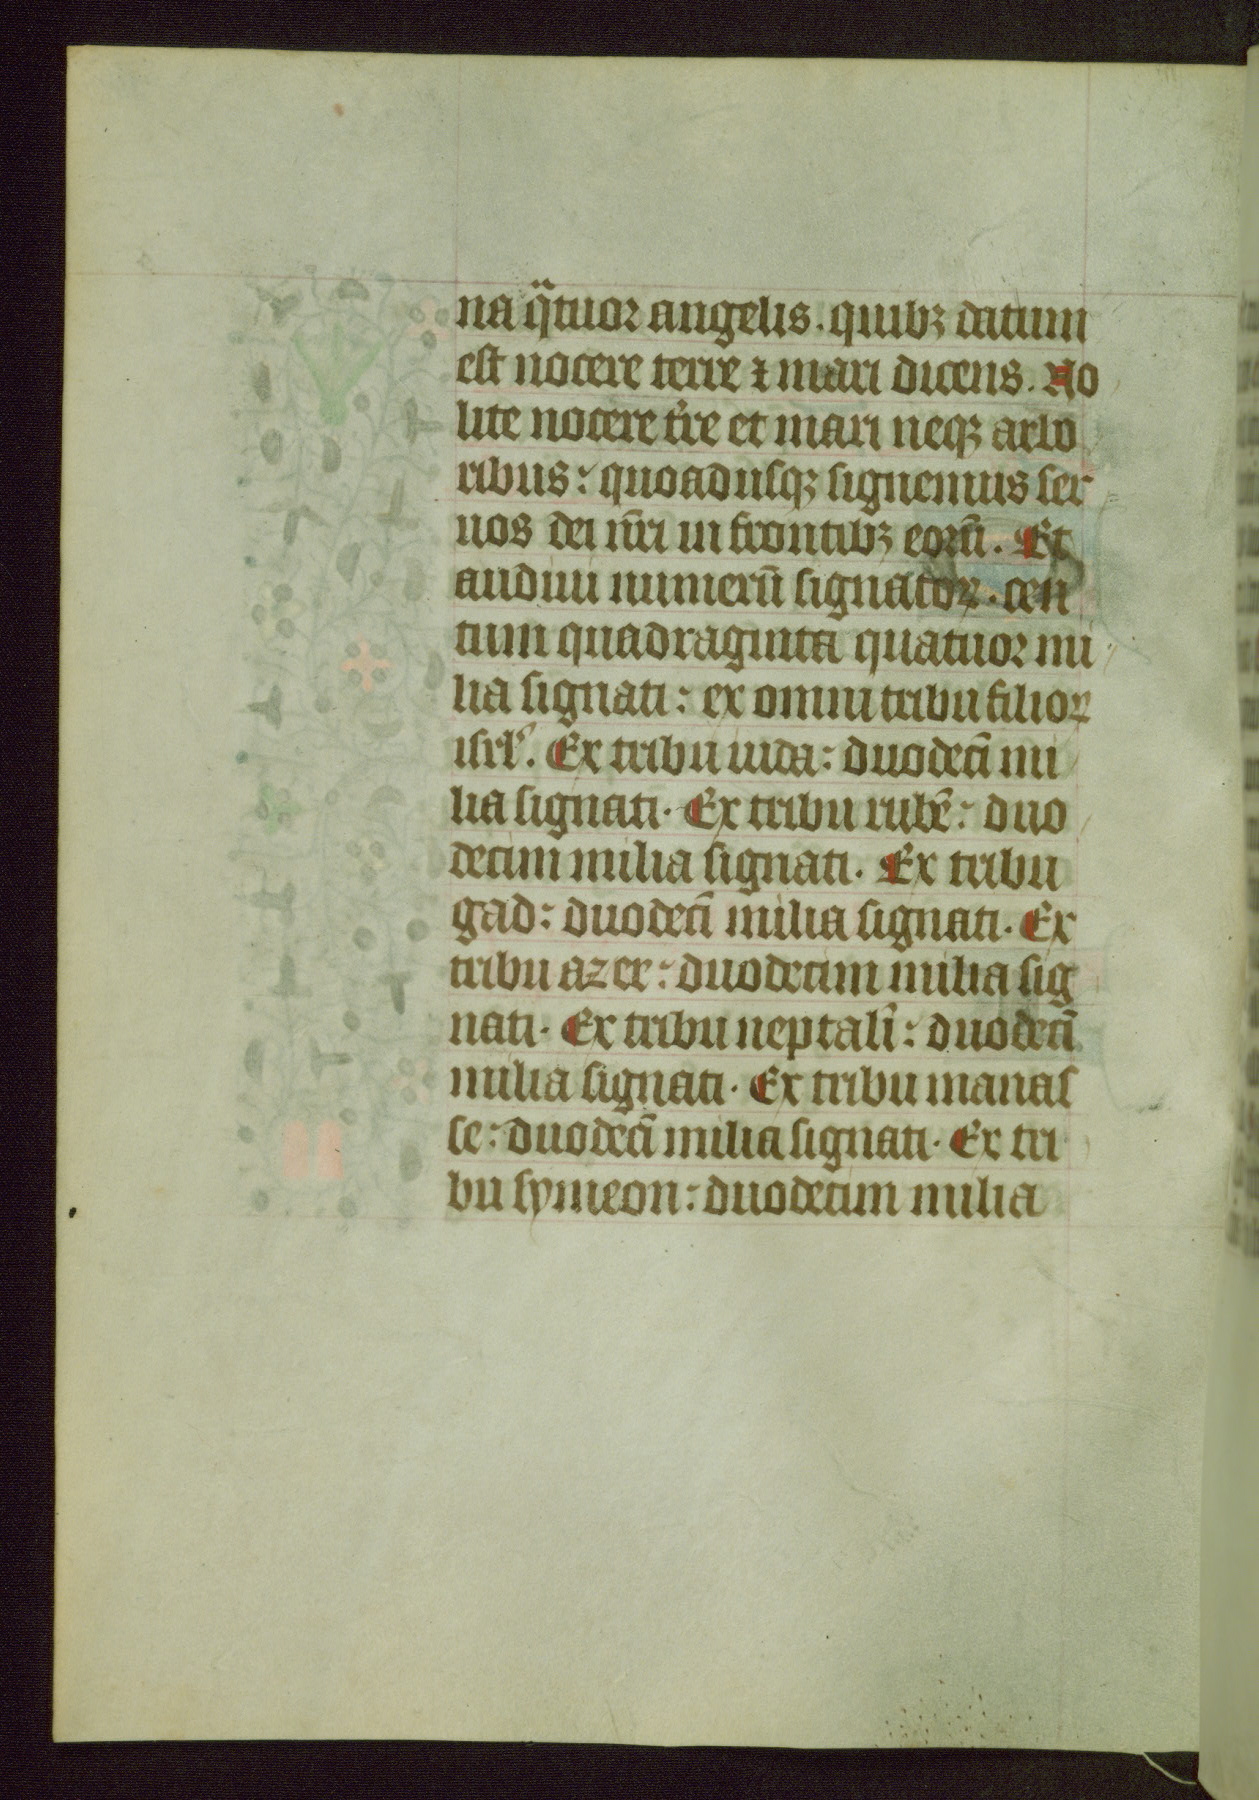 na qͣtuor angelis. quibꝫ datum
est nocere terre ⁊ mari dicens. No
lite nocere t̄re et mari neqꝫ arbo
ribus: quoadusqꝫ signemus ser
uos dei nr̄i in frontibꝫ eorū. Et
audiui numerū signatoꝝ. cen
tum quadraginta quatuor mi
lia signati: ex omni tribu filioꝝ
isrl'. Ex tribu iuda: duodecī mi
lia signati. Ex tribu rubē: duo
decim milia signati. Ex tribu
gad: duodecī milia signati. Ex
tribu azer: duodecim milia sig
nati. Ex tribu neptalī: duodecī
milia signati. Ex tribu manas
se: duodecī milia signati. Ex tri
bu symeon: duodecim milia